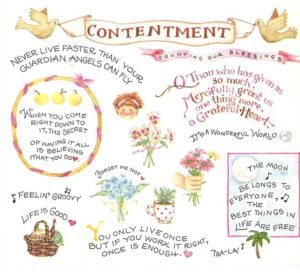 CONTENTMENT
COUNTING OUR BLESSINGS
NEVER LIVE FASTER THAN YOUR
GUARDIAN ANGELS CAN FLY.
O, Thou who has given us
so much,
Mercifully grant us
one thing more,
a Grateful Heart.
WHEN YOU COME
RIGHT DOWN TO
IT, THE SECRET
OF HAVING IT ALL
IS BELIEVING
THAT YOU DO
IT'S A WONDERFUL WORLD
FORGET ME NOT
FEELIN' GROOVY
LIFE IS GOOD
YOU ONLY LIVE ONCE
BUT IF YOU WORK IT RIGHT,
ONCE IS ENOUGH.
THE MOON
BELONGS TO
EVERYONE,
THE
BEST THINGS IN
LIFE ARE FREE
TRA-LA